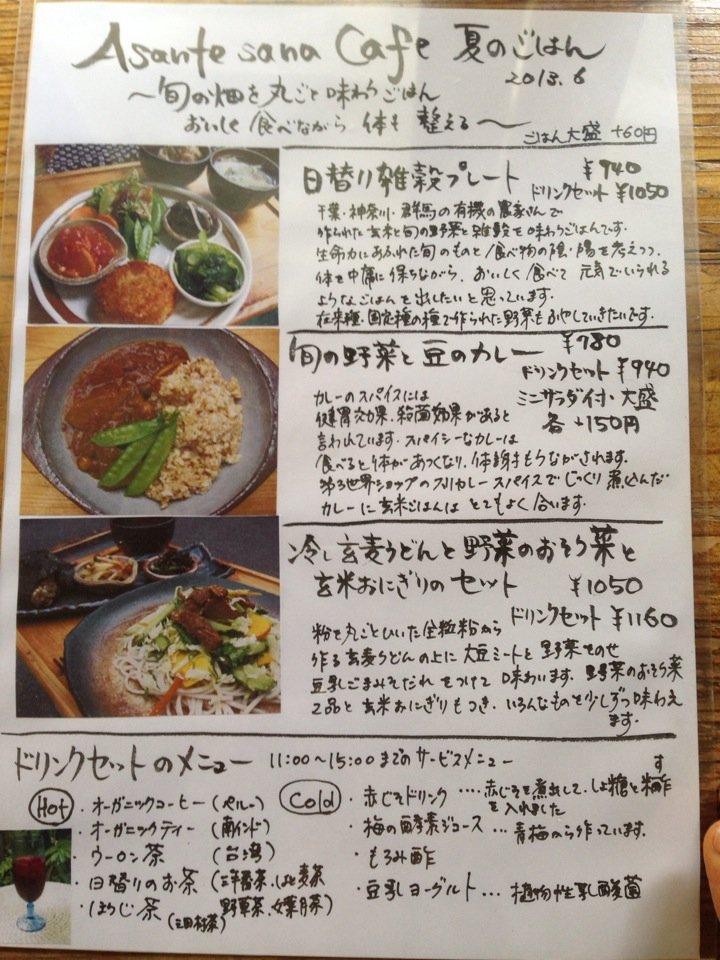 Asante sana Cafe 夏のごはん
2013. 6
～旬の畑を丸ごと味わうごはん
おいしく食べながら 体も 整える～
ごはん大盛 +60円
日替り雑穀プレート ¥940
ドリンクセット ¥1050
千葉・神奈川・群馬の有機の農家さんで
作られた玄米と旬の野菜と雑穀を味わうごはんです。
生命力にあふれた旬のものと食べ物の陰・陽を考えつつ、
体を中庸に保ちながら、おいしく食べて 元気でいられる
ようなごはんを出したいと思っています。
在来種・固定種の種で作られた野菜もふやしていきたいです。
旬の野菜と豆のカレー ¥780
ドリンクセット ¥940
ミニサラダ付・大盛
各 +150円
カレーのスパイスには
健胃効果、殺菌効果があると
言われています。スパイシーなカレーは
食べると体があつくなり、体謝もうながされます。
第3世界ショップのカレースパイスでじっくり煮込んだ
カレーに玄米ごはんは とてもよく合います。
冷し玄麦うどんと野菜のおそう菜と
玄米おにぎりのセット ¥1050
ドリンクセット ¥1160
粉を丸ごとひいた全粒粉から
作る玄麦うどんの上に大豆ミートと野菜をのせ
豆乳ごまみそだれをつけて味わいます。野菜のおそう菜
2品と玄米おにぎりもつき、いろんなものを少しずつ味わえ
ます。
ドリンクセットのメニュー 11:00～15:00までのサービスメニュー
Hot
・オーガニックコーヒー (ペルー)
・オーガニックティー (南インド)
・ウーロン茶 (台湾)
・日替りのお茶 (三年番茶、はと麦茶
野草茶、女葉月茶)
・ほうじ茶
Cold
・赤じそドリンク ‥‥赤じそを煮出して、しょ糖と米酢
す
を入れました
・梅の酵素ジュース …青梅から作っています。
・もろみ酢
・豆乳ヨーグルト … 植物性乳酸菌